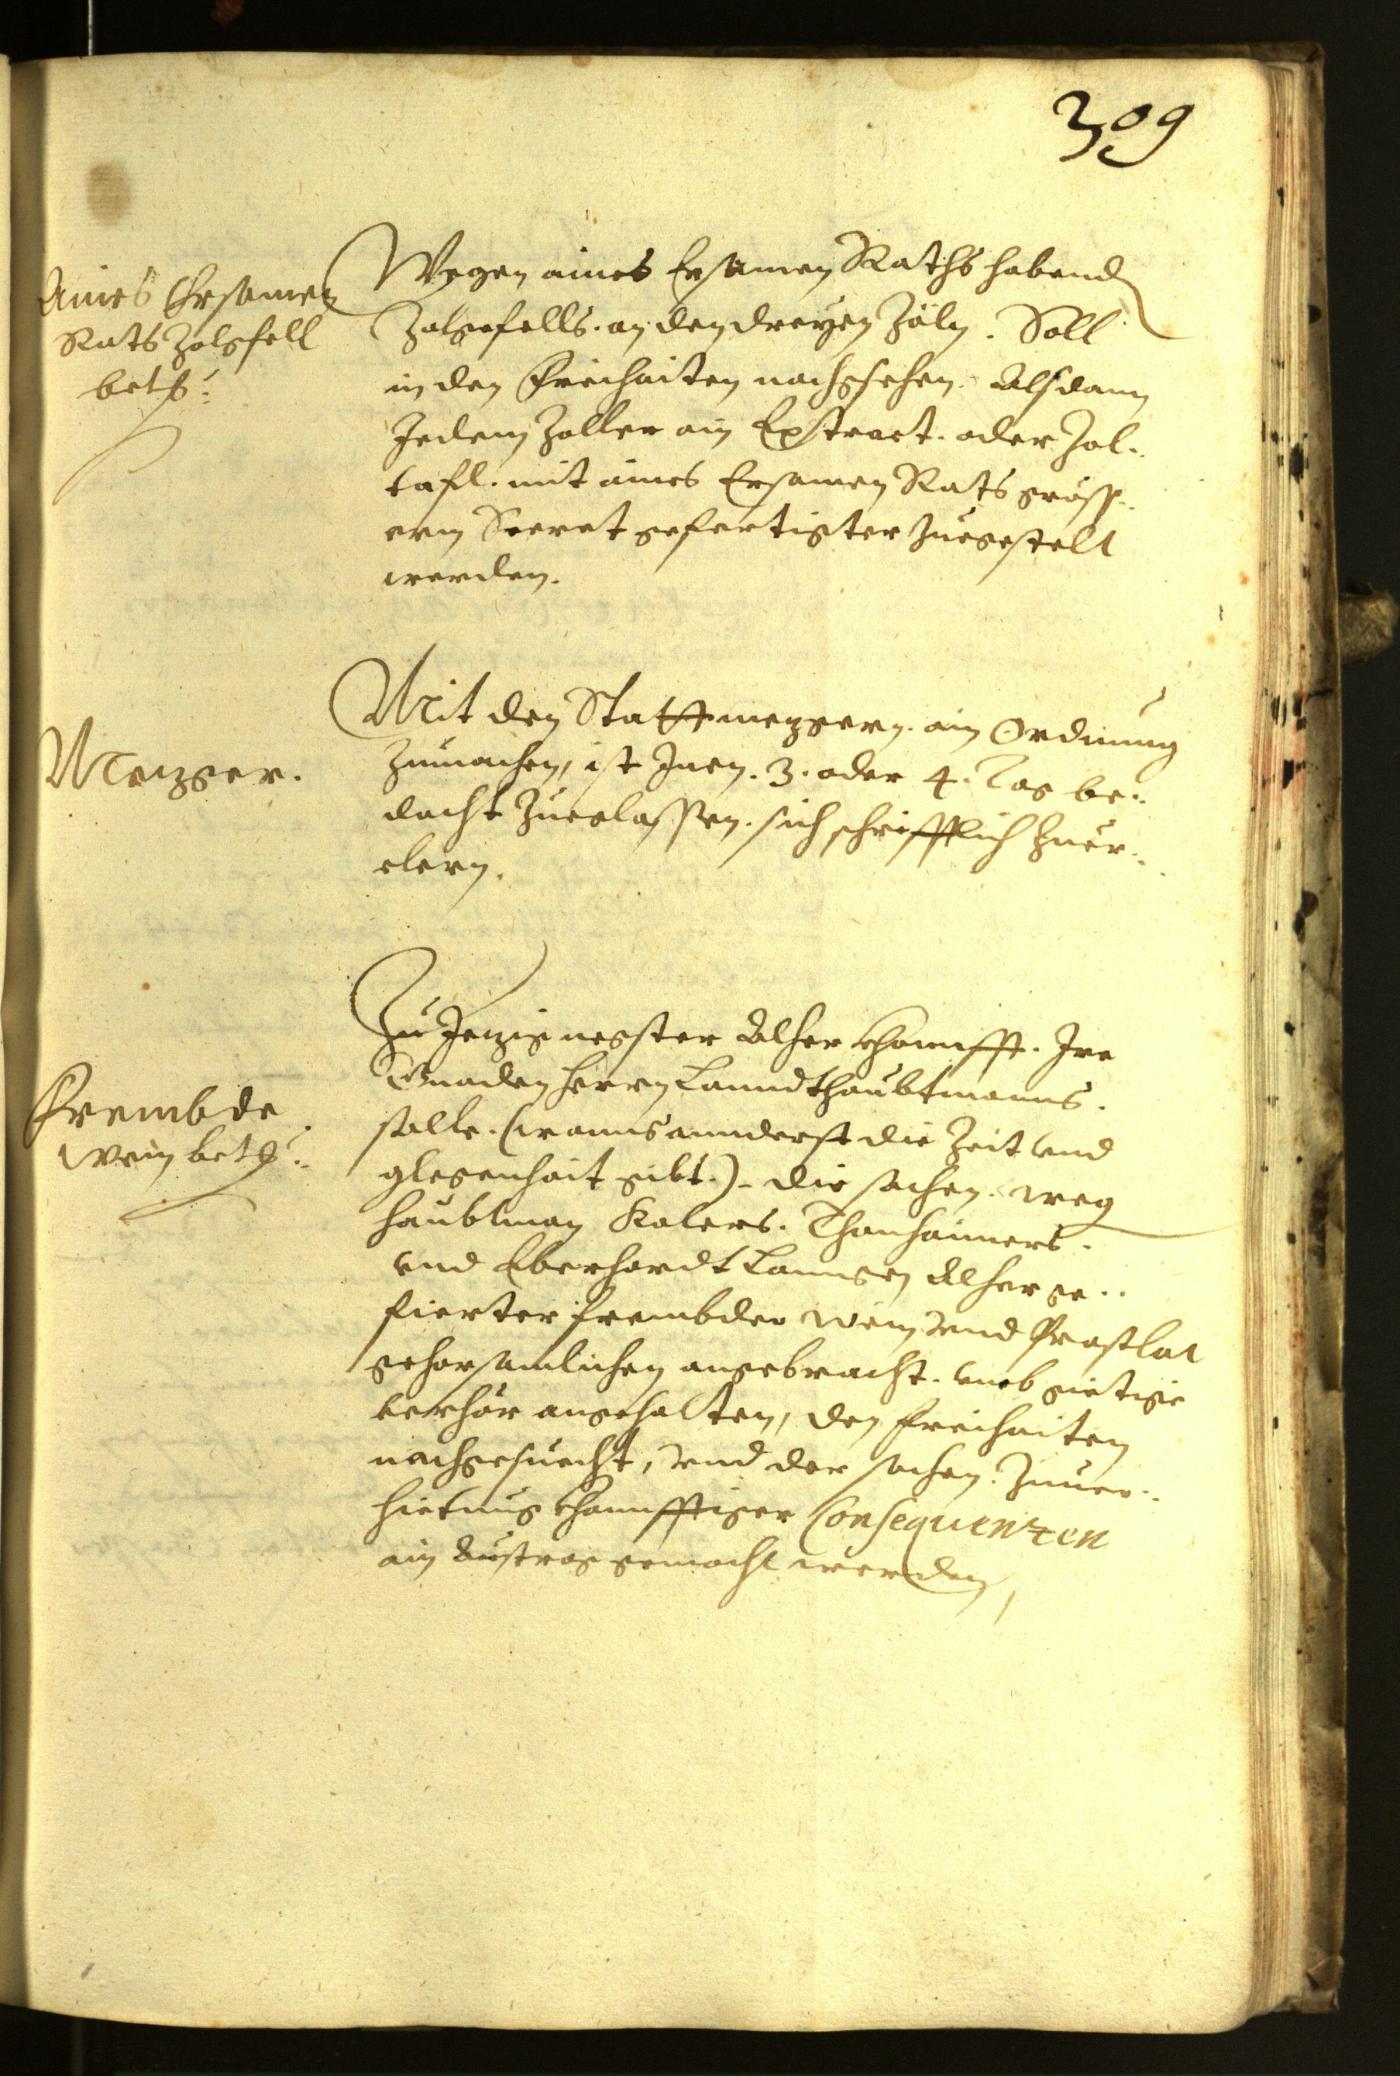 309
Aines Ersamen
Rats Zolgfell
betr:
Wegen aines Ersamen Raths habend
Zolgefells. an den dreyen Zöln. Soll
in den Freihaiten nachgesehen. Alsdann
Jedem Zoller ain Extract. oder Zol-
tafl. mit aines Ersamen Rats gröss-
erm Secret gefertigter zuegestelt
werden.
Metzger.
Mit den Stattmetzgern. ain Ordnung
zumachen, ist Inen. 3. oder 4. Tag be-
dacht zuelassen. sich schrifftlich zuer-
clern.
Frembde
Wein betr:
Zu Jetzig negster Alherkhonnfft. Irer
Gnaden Herrn Lanndthaubtmanns.
solle. (wanns annderst die Zeit und
glegenhait gibt.) die sachen. weg
haubtman Kalers. Thanhaimers.
und Eberhardt Lanngen Alherge-
fierter frembder Wein und Prastlat
gehorsamlichen angebracht. umb gietige
verhör angehalten, den Freihaiten
nachgesuecht, und der sachen. zuuer-
hietung khonnfftiger Consequenzen
ain Austrag gemacht werden,